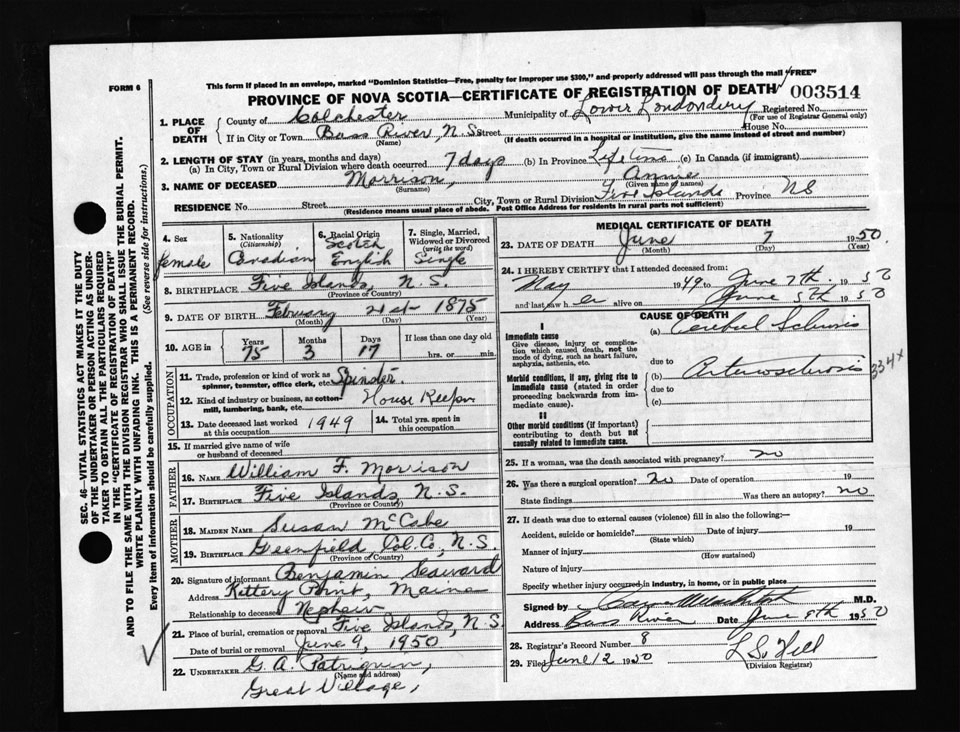 This form if placed in an envelope, marked "Dominion Statistics—Free, penalty for improper use $300," and properly addressed will pass through the mail "FREE"
FORM 6
PROVINCE OF NOVA SCOTIA—CERTIFICATE OF REGISTRATION OF DEATH 003514
1. PLACE OF DEATH
County of Colchester Municipality of Lower Londonderry Registered No.
(For use of Registrar General only)
If in City or Town Bass River, N.S. Street House No.
(Name) (If death occurred in a hospital or institution, give the name instead of street and number)
2. LENGTH OF STAY (in years, months and days)
(a) In City, Town or Rural Division where death occurred 7 days (b) In Province Life time (c) In Canada (if immigrant)
3. NAME OF DECEASED Morrison, Annie
(Surname) (Given name or names)
RESIDENCE No. Street City, Town or Rural Division Five Islands Province NS
(Residence means usual place of abode. Post Office Address for residents in rural parts not sufficient)
4. Sex
female
5. Nationality
(Citizenship)
Canadian
6. Racial Origin
Scotch
English
7. Single, Married, Widowed or Divorced
(write the word)
Single
8. BIRTHPLACE Five Islands, N.S.
(Province or Country)
9. DATE OF BIRTH February 21st 1875
(Month) (Day) (Year)
10. AGE in Years Months Days If less than one day old
75 3 17 hrs. or min.
OCCUPATION
11. Trade, profession or kind of work as spinner, teamster, office clerk, etc. Spinster
12. Kind of industry or business, as cotton-mill, lumbering, bank, etc. House Keeper
13. Date deceased last worked at this occupation 1949
14. Total yrs. spent in this occupation
15. If married give name of wife or husband of deceased
FATHER
16. NAME William F. Morrison
17. BIRTHPLACE Five Islands, N.S.
MOTHER
18. MAIDEN NAME Susan McCabe
19. BIRTHPLACE Greenfield, Col. Co, N.S.
(Province or Country)
20. Signature of informant Benjamin Seaward
Address Kittery Point, Maine
Relationship to deceased Nephew
21. Place of burial, cremation or removal Five Islands, N.S.
Date of burial or removal June 9, 1950
22. UNDERTAKER G. A. Patriquin,
(Name and address)
Great Village,
MEDICAL CERTIFICATE OF DEATH
23. DATE OF DEATH June 7 1950
(Month) (Day) (Year)
24. I HEREBY CERTIFY that I attended deceased from:
May 1949 to June 7th 1950
and last saw her alive on June 5th 1950
CAUSE OF DEATH
I
Immediate cause
Give disease, injury or complication which caused death, not the mode of dying, such as heart failure, asphyxia, asthenia, etc.
(a)
due to
Morbid conditions, if any, giving rise to immediate cause (stated in order proceeding backwards from immediate cause).
(b) Arteriosclerosis
334x
due to
(c)
II
Other morbid conditions (if important) contributing to death but not causally related to immediate cause.
25. If a woman, was the death associated with pregnancy? no
26. Was there a surgical operation? no Date of operation 19
State findings Was there an autopsy? no
27. If death was due to external causes (violence) fill in also the following:—
Accident, suicide or homicide? Date of injury 19
(State which)
Manner of injury
(How sustained)
Nature of injury
Specify whether injury occurred in industry, in home, or in public place
Signed by M.D.
Address Bass River Date June 8th 1950
28. Registrar's Record Number 8
29. Filed June 12 1950
(Division Registrar)
SEC. 46—VITAL STATISTICS ACT MAKES IT THE DUTY
OF THE UNDERTAKER OR PERSON ACTING AS UNDER-
TAKER TO OBTAIN ALL THE PARTICULARS REQUIRED
IN THE "CERTIFICATE OF REGISTRATION OF DEATH" AND TO FILE THE SAME WITH THE DIVISION REGISTRAR WHO SHALL ISSUE THE BURIAL PERMIT.
WRITE PLAINLY WITH UNFADING INK. THIS IS A PERMANENT RECORD.
Every item of information should be carefully supplied. (See reverse side for instructions.)